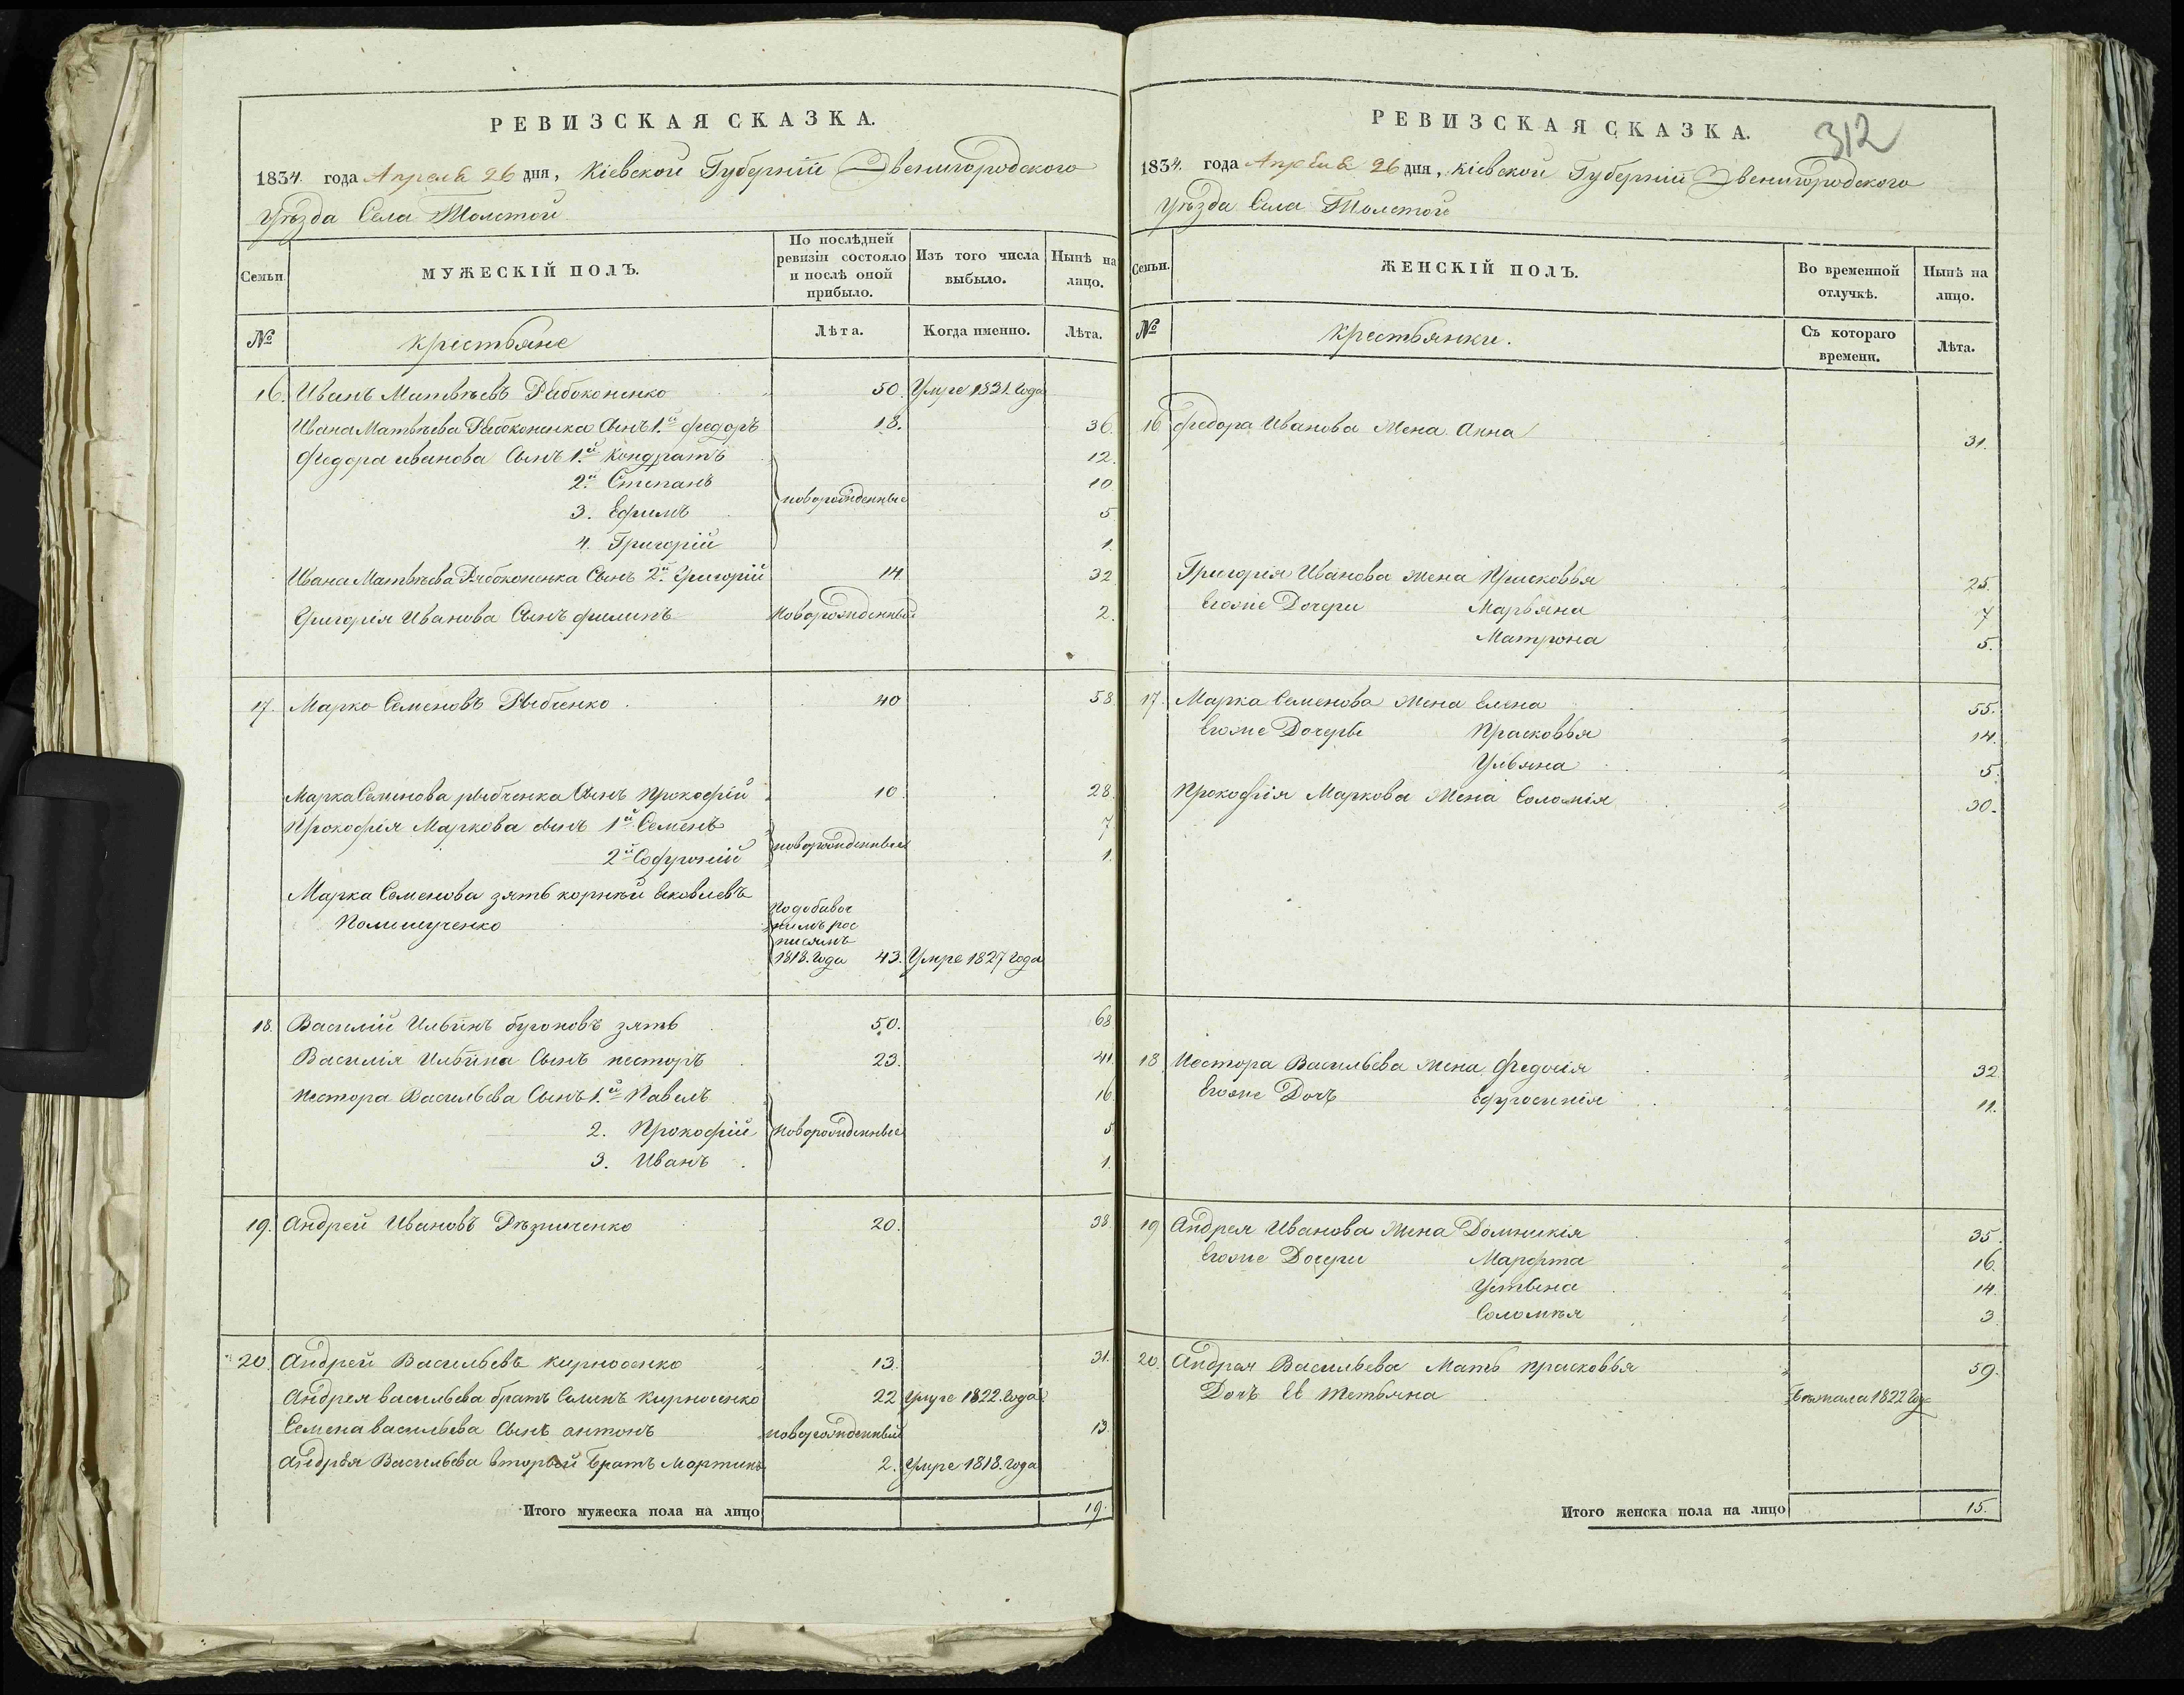 РЕВИЗСКАЯ СКАЗКА.
1834. года Апреля 26 дня, Кіевской Губерніи Звенигородского
уѣзда Села Толстой
Семьи.
МУЖЕСКІЙ ПОЛЪ.
По послѣдней ревизіи состояло и послѣ оной прибыло.
Изъ того числа выбыло.
Нынѣ на лицо.
№
Крістьяне
Лѣта.
Когда именно.
Лѣта.
16. Иванъ Матвѣевъ Рябоконенко 50. Умре 1831 года
Ивана Матвѣева Рябоконенка Сынъ 1.й Федоръ 18. 36.
Федора иванова Сынъ 1.й Кондратъ 12.
2.й Степанъ 10
новорожденные
3. Ефимъ 5
4. Григорій 1.
Ивана Матвѣева Рябоконенка Сынъ 2.й Григорій 14 32
Григорія Иванова Сынъ филипъ Новорожденный 2.
17. Марко Семеновъ Рыбченко 40 58
Марка Семенова рыбченка Сынъ Прокофій 10. 28.
Прокофія Маркова сынъ 1й Семенъ 7
новорожденные
2й Софроній 1.
Марка Семенова зять корнѣй Яковлевъ
Полищученко
По добавоч
нымъ рос
писямъ
1818. года 43. Умре 1827 года
18. Василій Ильинъ бугоновъ зять 50. 68
Василія Ильина Сынъ несторъ 23. 41.
Нестора Васильева Сынъ 1.й Павелъ 16
2. Прокофій Новорожденные 5
3. Иванъ 1.
19. Андрей Ивановъ Рѣзниченко 20. 38.
20. Андрей Васильевъ кирносенко 13. 31.
Андрея васильева братъ Семенъ Кирносенко 22 умре 1822. года
Семена васильева Сынъ антонъ новорожденный 13.
Андрѣя Васильева вторый братъ Мартинъ 2. Умре 1818. года
Итого мужеска пола на лицо 19.
312
РЕВИЗСКАЯ СКАЗКА.
1834. года Апреля 26 дня, Кіевской Губерніи Звенигородского
уѣзда Села Толстой
Семьи.
ЖЕНСКІЙ ПОЛЪ.
Во временной отлучкѣ.
Нынѣ на лицо.
№
Крестьянки.
Съ котораго времени.
Лѣта.
16 Федора Иванова Жена Анна 31.
Григорія Иванова жена Присковья 25.
Егоже Дочери Марьяна 7
Матрона 5.
17. Марка Семенова жена Елена 55.
Егоже Дочеры Прасковья 14.
Ульяна 5.
Прокофія Маркова Жена Соломія 30.
18 Нестора Васильева жена Федосія 32
Егоже Дочь Ефросинія 11.
19 Андрея Иванова Жена Домникія 35.
Егоже Дочери Марфта 16.
Устина 14.
Соломѣя 3
20. Андрея Васильева Мать прасковья 59.
Дочь Её Тетьяна бежала 1822 года
Итого женска пола на лицо 15.